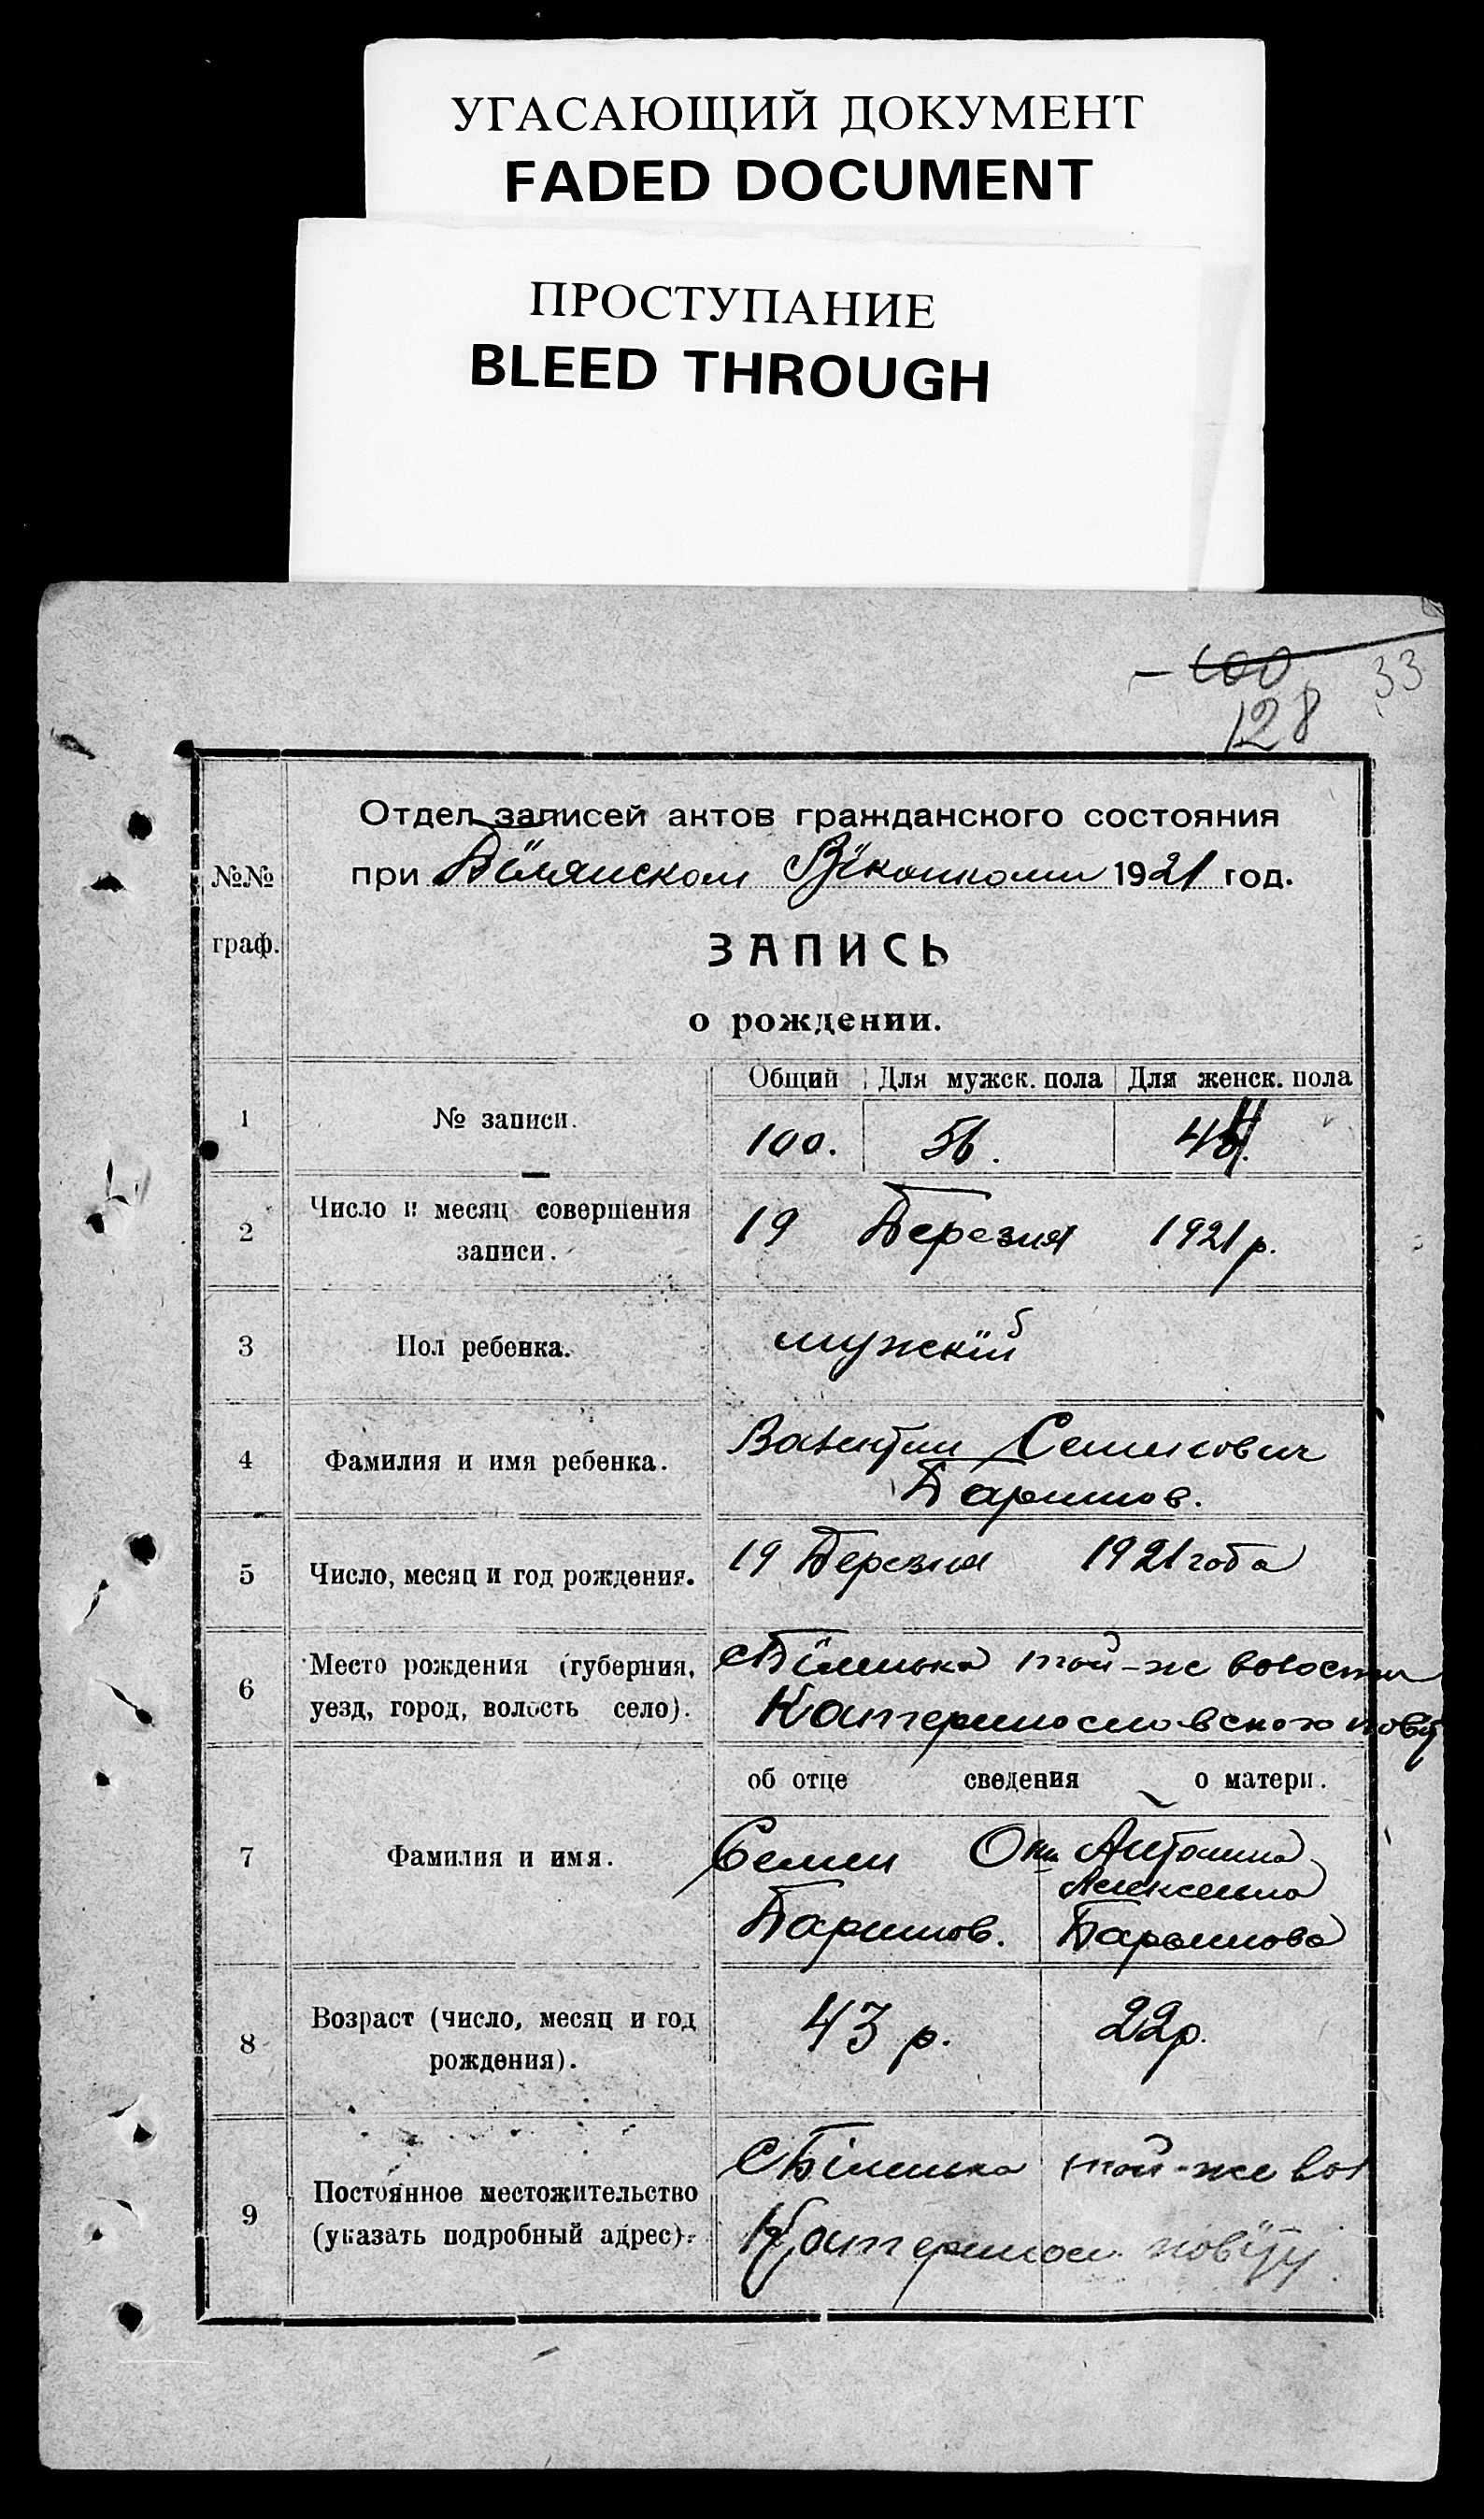 УГАСАЮЩИЙ ДОКУМЕНТ
FADED DOCUMENT
ПРОСТУПАНИЕ
BLEED THROUGH
100 33
128
Отдел записей актов гражданского состояния
№№ при Білянском 1921 год.
граф.
ЗАПИСЬ
о рождении.
Общий Для мужск. пола Для женск. пола
1 № записи. 100. 56. 44.
2 Число и месяц совершения записи. 19 Березня 1921 р.
3 Пол ребенка. мужскій
4 Фамилия и имя ребенка. Валентин Семенович
Баринов.
5 Число, месяц и год рождения. 19 Березня 1921 года
6 Место рождения (губерния, с Біленька той-же волости
уезд, город, волость село). Катеринославского повіту
об отце сведения о матери.
7 Фамилия и имя. Семен Антонина
Алексеевна
Баринов. Баринова
8 Возраст (число, месяц и год рождения). 43 р. 22 р.
9 Постоянное местожительство с Біленька той-же вол
(указать подробный адрес). Катеринос. повіту